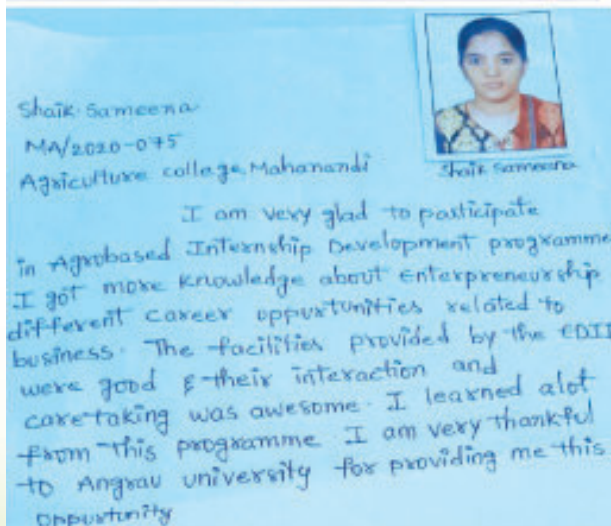 Shaik Sameena
MA/2020-075
Agriculture college, Mahanandi
Shaik Sameena
I am very glad to participate
in Agrobased Internship Development programme
I got more knowledge about Enterpreneurship
different career oppurtunities related to
business. The facilities provided by the EDII
were good & their interaction and
caretaking was awesome. I learned alot
from this programme. I am very thankful
to Angrau university for providing me this
oppurtunity